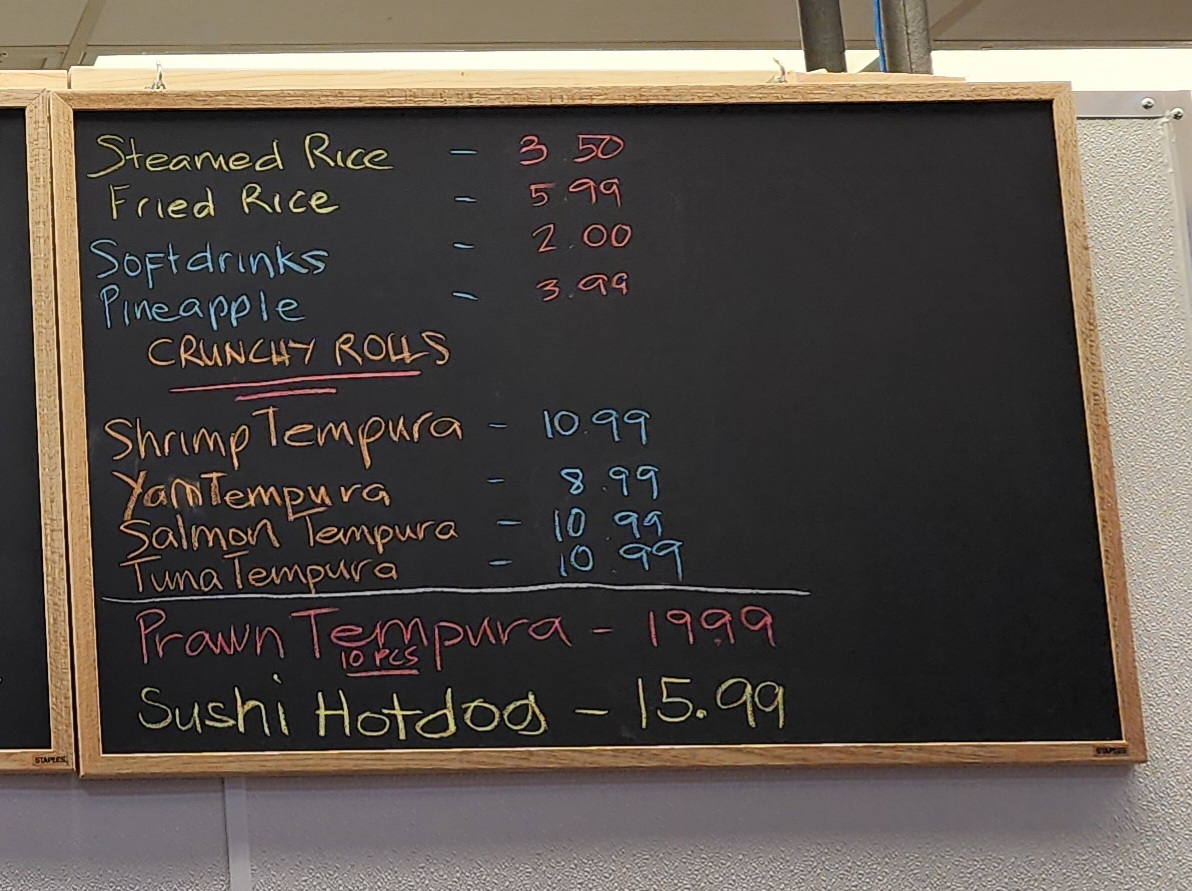 Steamed Rice - 3.50
Fried Rice - 5.99
Softdrinks - 2.00
Pineapple - 3.99
CRUNCHY ROLLS
Shrimp Tempura - 10.99
Yam Tempura - 8.99
Salmon Tempura - 10.99
Tuna Tempura - 10.99
Prawn Tempura - 19.99
10 PCS
Sushi Hotdog - 15.99
STAPLES
STAPLES